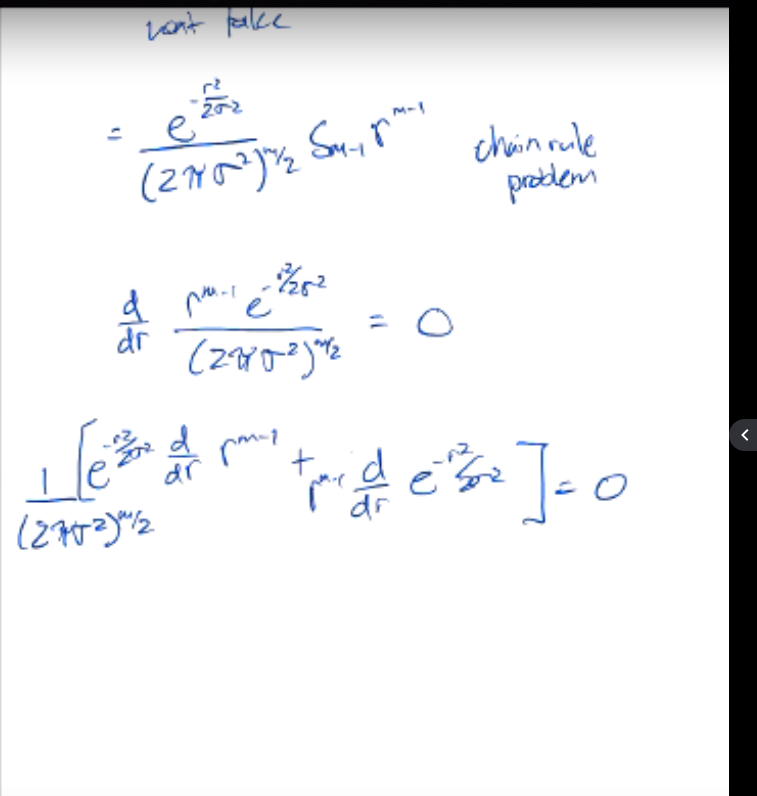 won't take
= e^{-r²/2σ²} / (2πσ²)^{m/2} S_{m-1} r^{m-1}
chain rule
problem
d/dr r^{m-1} e^{-r²/2σ²} / (2πσ²)^{m/2} = 0
1/(2πσ²)^{m/2} [e^{-r²/2σ²} d/dr r^{m-1} + r^{m-1} d/dr e^{-r²/2σ²}] = 0